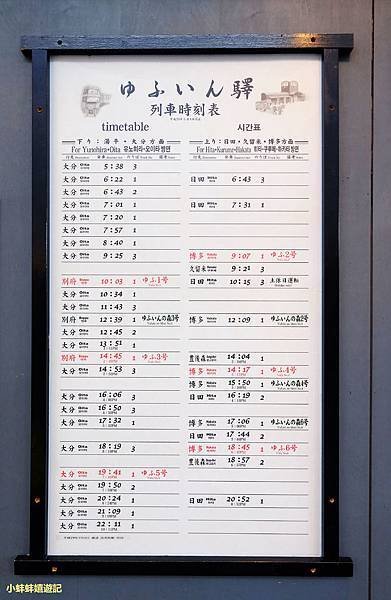 ゆふいん驛
列車時刻表
timetable 시간표
下り：湯平・大分方面
For Yunohira•Oita 유노히라•오이타 방면
大分 Oita 5:38 3
大分 Oita 6:22 1
大分 Oita 6:43 2
大分 Oita 7:01 1
大分 Oita 7:20 1
大分 Oita 7:57 1
大分 Oita 8:40 1
大分 Oita 9:25 3
別府 10:03 1 ゆふ1号
大分 Oita 10:34 1
大分 Oita 11:43 3
別府 12:39 1 ゆふいんの森3号
大分 Oita 12:45 2
大分 Oita 13:51 1
別府 14:45 1 ゆふ3号
大分 Oita 14:53 3
大分 Oita 16:06 3
大分 Oita 16:50 3
大分 Oita 17:32 1
大分 Oita 18:19 3
大分 Oita 19:41 1 ゆふ5号
大分 Oita 19:50 2
大分 Oita 20:24 1
大分 Oita 21:09 1
大分 Oita 22:11 1
上り：日田・久留米・博多方面
For Hita•Kurume•Hakata 히타•구루메•하카타 방면
日田 Hita 6:43 3
日田 Hita 7:31 1
博多 Hakata 9:07 1 ゆふ2号
久留米 9:21 3
日田 Hita 10:15 3 土休日運転
博多 Hakata 12:09 1 ゆふいんの森2号
豊後森 14:04 3
博多 Hakata 14:17 1 ゆふ4号
博多 Hakata 15:50 1 ゆふいんの森4号
日田 Hita 16:19 2
博多 Hakata 17:06 1 ゆふいんの森6号
日田 Hita 17:44 2
博多 Hakata 18:45 1 ゆふ6号
豊後森 18:57 2
日田 Hita 20:52 1
小蚌蚌嬉遊記